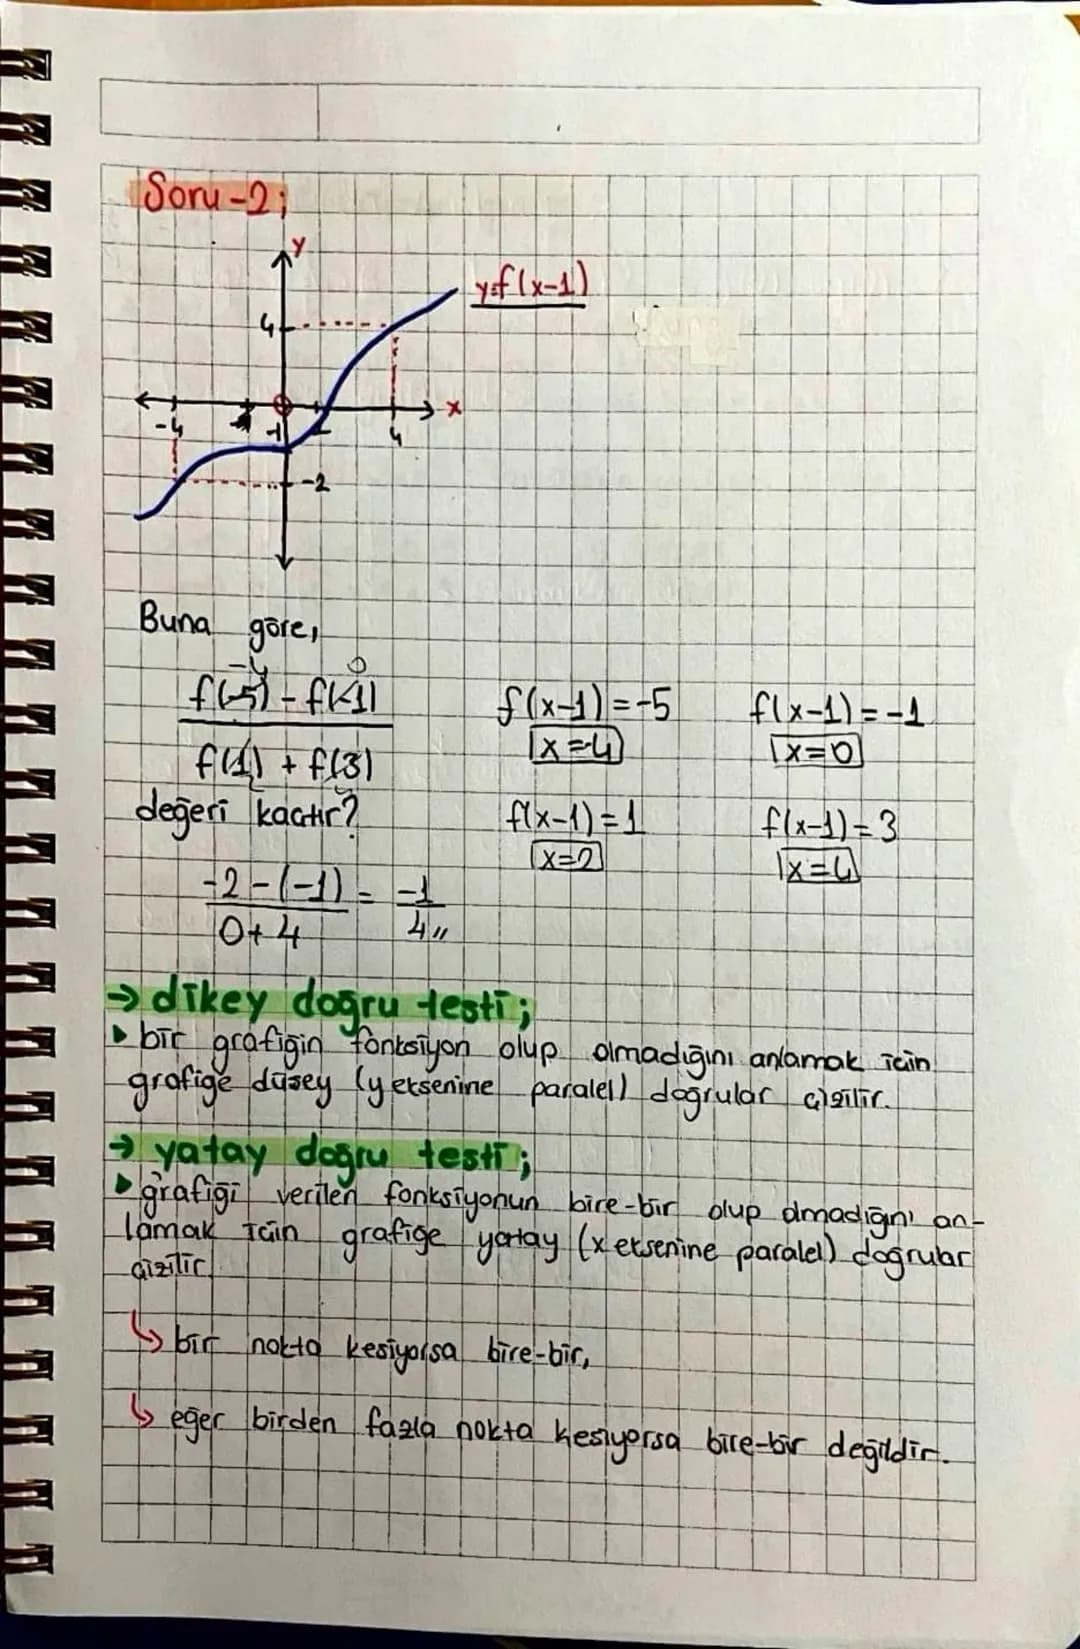 Soru-2;
y
y=f(x-1)
4
x
-4
-1
4
-2
Buna göre,
-4 0
f(-5) - f(-1)
f(1) + f(3)
değeri kaçtır?
f(x-1)=-5
x=-4
f(x-1)=-1
x=0
f(x-1)=1
x=2
f(x-1)=3
x=4
-2-(-1) = -1
0+4 4
→ dikey doğru testi;
▸ bir grafiğin fonksiyon olup olmadığını anlamak için
grafiğe düşey (y eksenine paralel) doğrular çizilir.
→ yatay doğru testi;
▸ grafiği verilen fonksiyonun bire-bir olup olmadığını an-
lamak için grafiğe yatay (x eksenine paralel) doğrular
çizilir.
↳ bir nokta kesiyorsa bire-bir,
↳ eğer birden fazla nokta kesiyorsa bire-bir değildir.